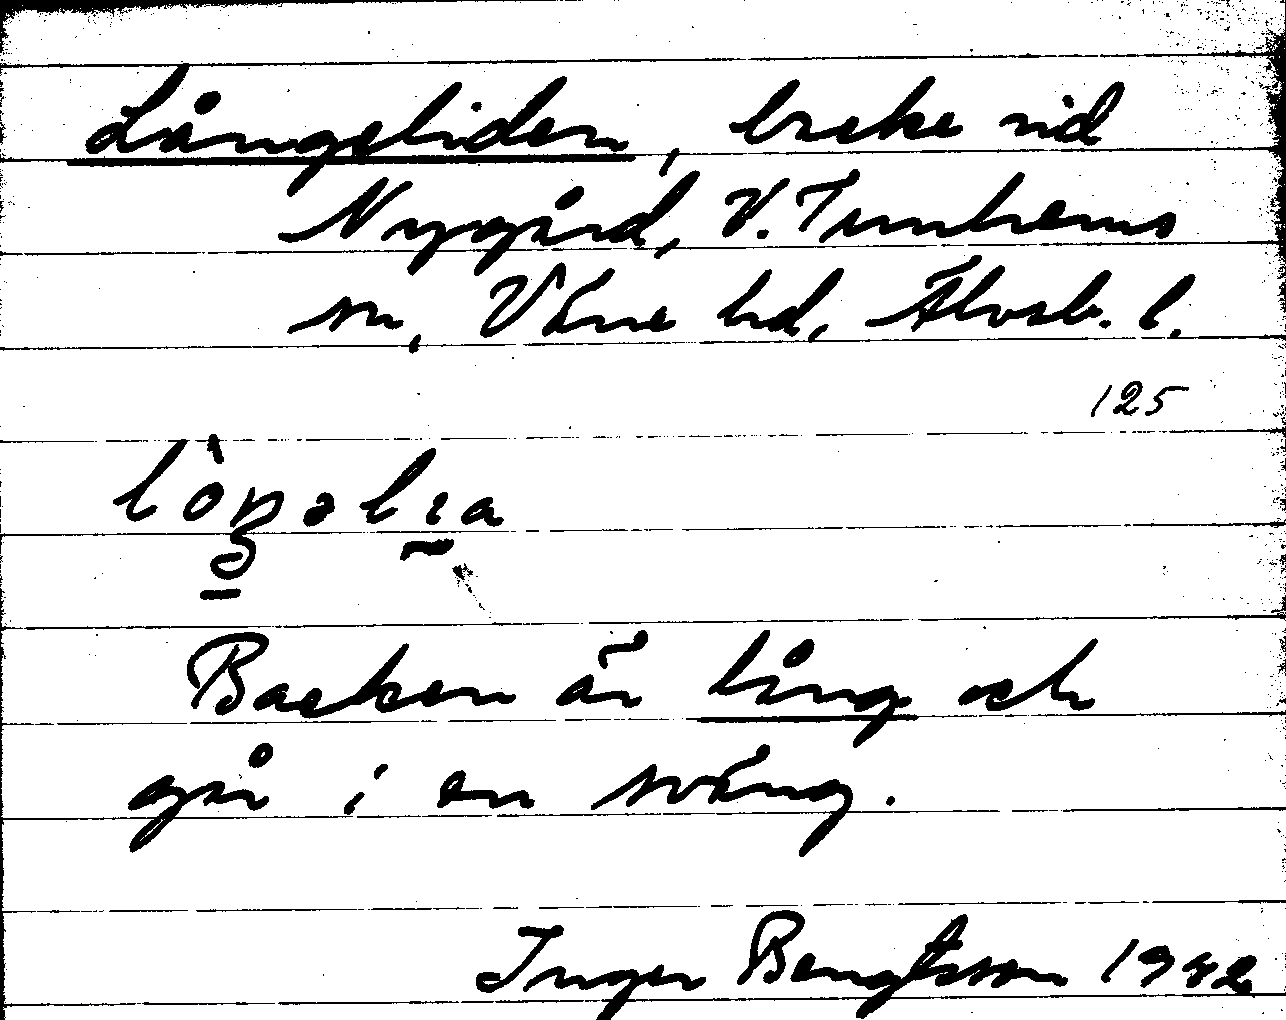 Långeliden, backe vid
Nygård, V. Tunhems
sn, Väne hd, Älvsb. l.
125
lòŋəlɪa
Backen är lång och
går i en sväng.
Inger Bengtsson 1942